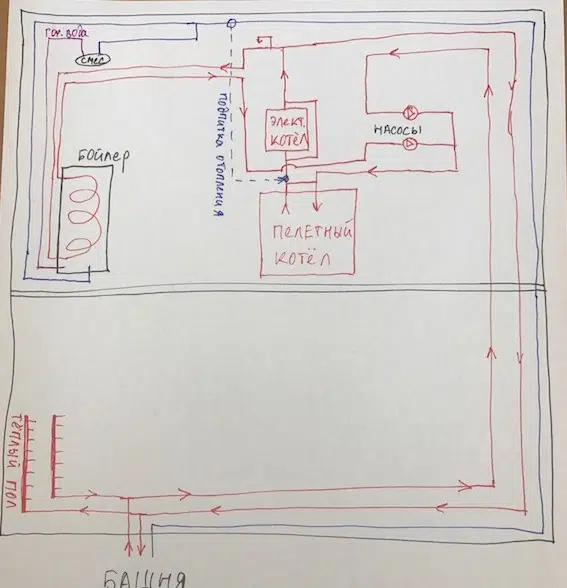 гор. вода
смес
БОЙЛЕР
ПОДПИТКА ОТОПЛЕНИЯ
ЭЛЕКТ.
КОТЁЛ
НАСОСЫ
ПЕЛЕТНЫЙ
КОТЁЛ
ТЁПЛЫЙ ПОЛ
БАШНЯ